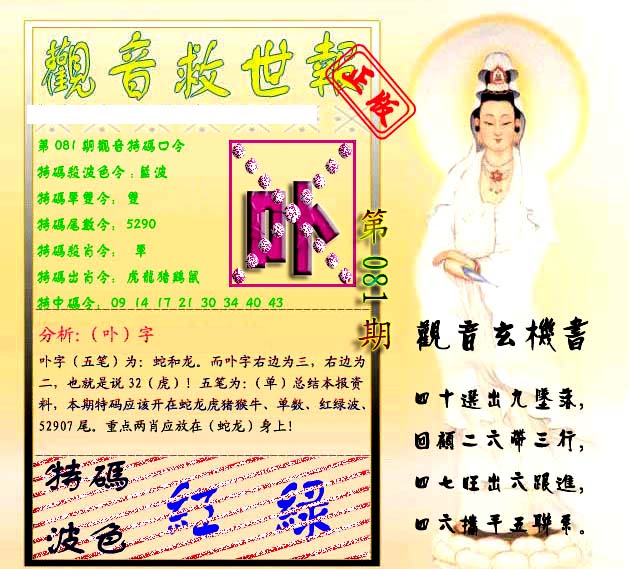 觀音救世報
正版
第 081 期觀音特碼口令
特碼殺波色令：藍波
特碼單雙令： 雙
特碼尾數令： 5290
特碼殺肖令： 單
特碼出肖令： 虎龍猪鷄鼠
特中碼令： 09 14 17 21 30 34 40 43
卟
第 081 期
分析：（卟）字
卟字（五笔）为：蛇和龙。而卟字右边为三，右边为
二，也就是说 32（虎）！五笔为：（单）总结本报资
料，本期特码应该开在蛇龙虎猪猴牛、单数、红绿波、
52907 尾。重点两肖应放在（蛇龙）身上！
特碼
波色
紅 綠
觀音玄機書
四十選出九墜落，
回顧二六帶三行，
四七旺出六跟進，
四六攜手五聯系。